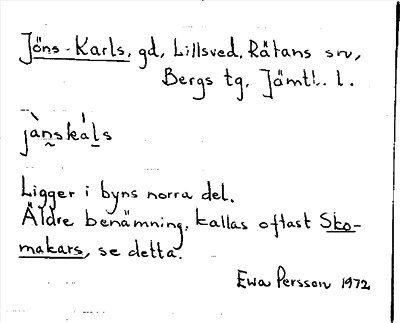 Jöns-Karls, gd, Lillsved, Rätans sn,
Bergs tg, Jämtl. l.
jànskáls
Ligger i byns norra del.
Äldre benämning, kallas oftast Sko-
makars, se detta.
Ewa Persson 1972